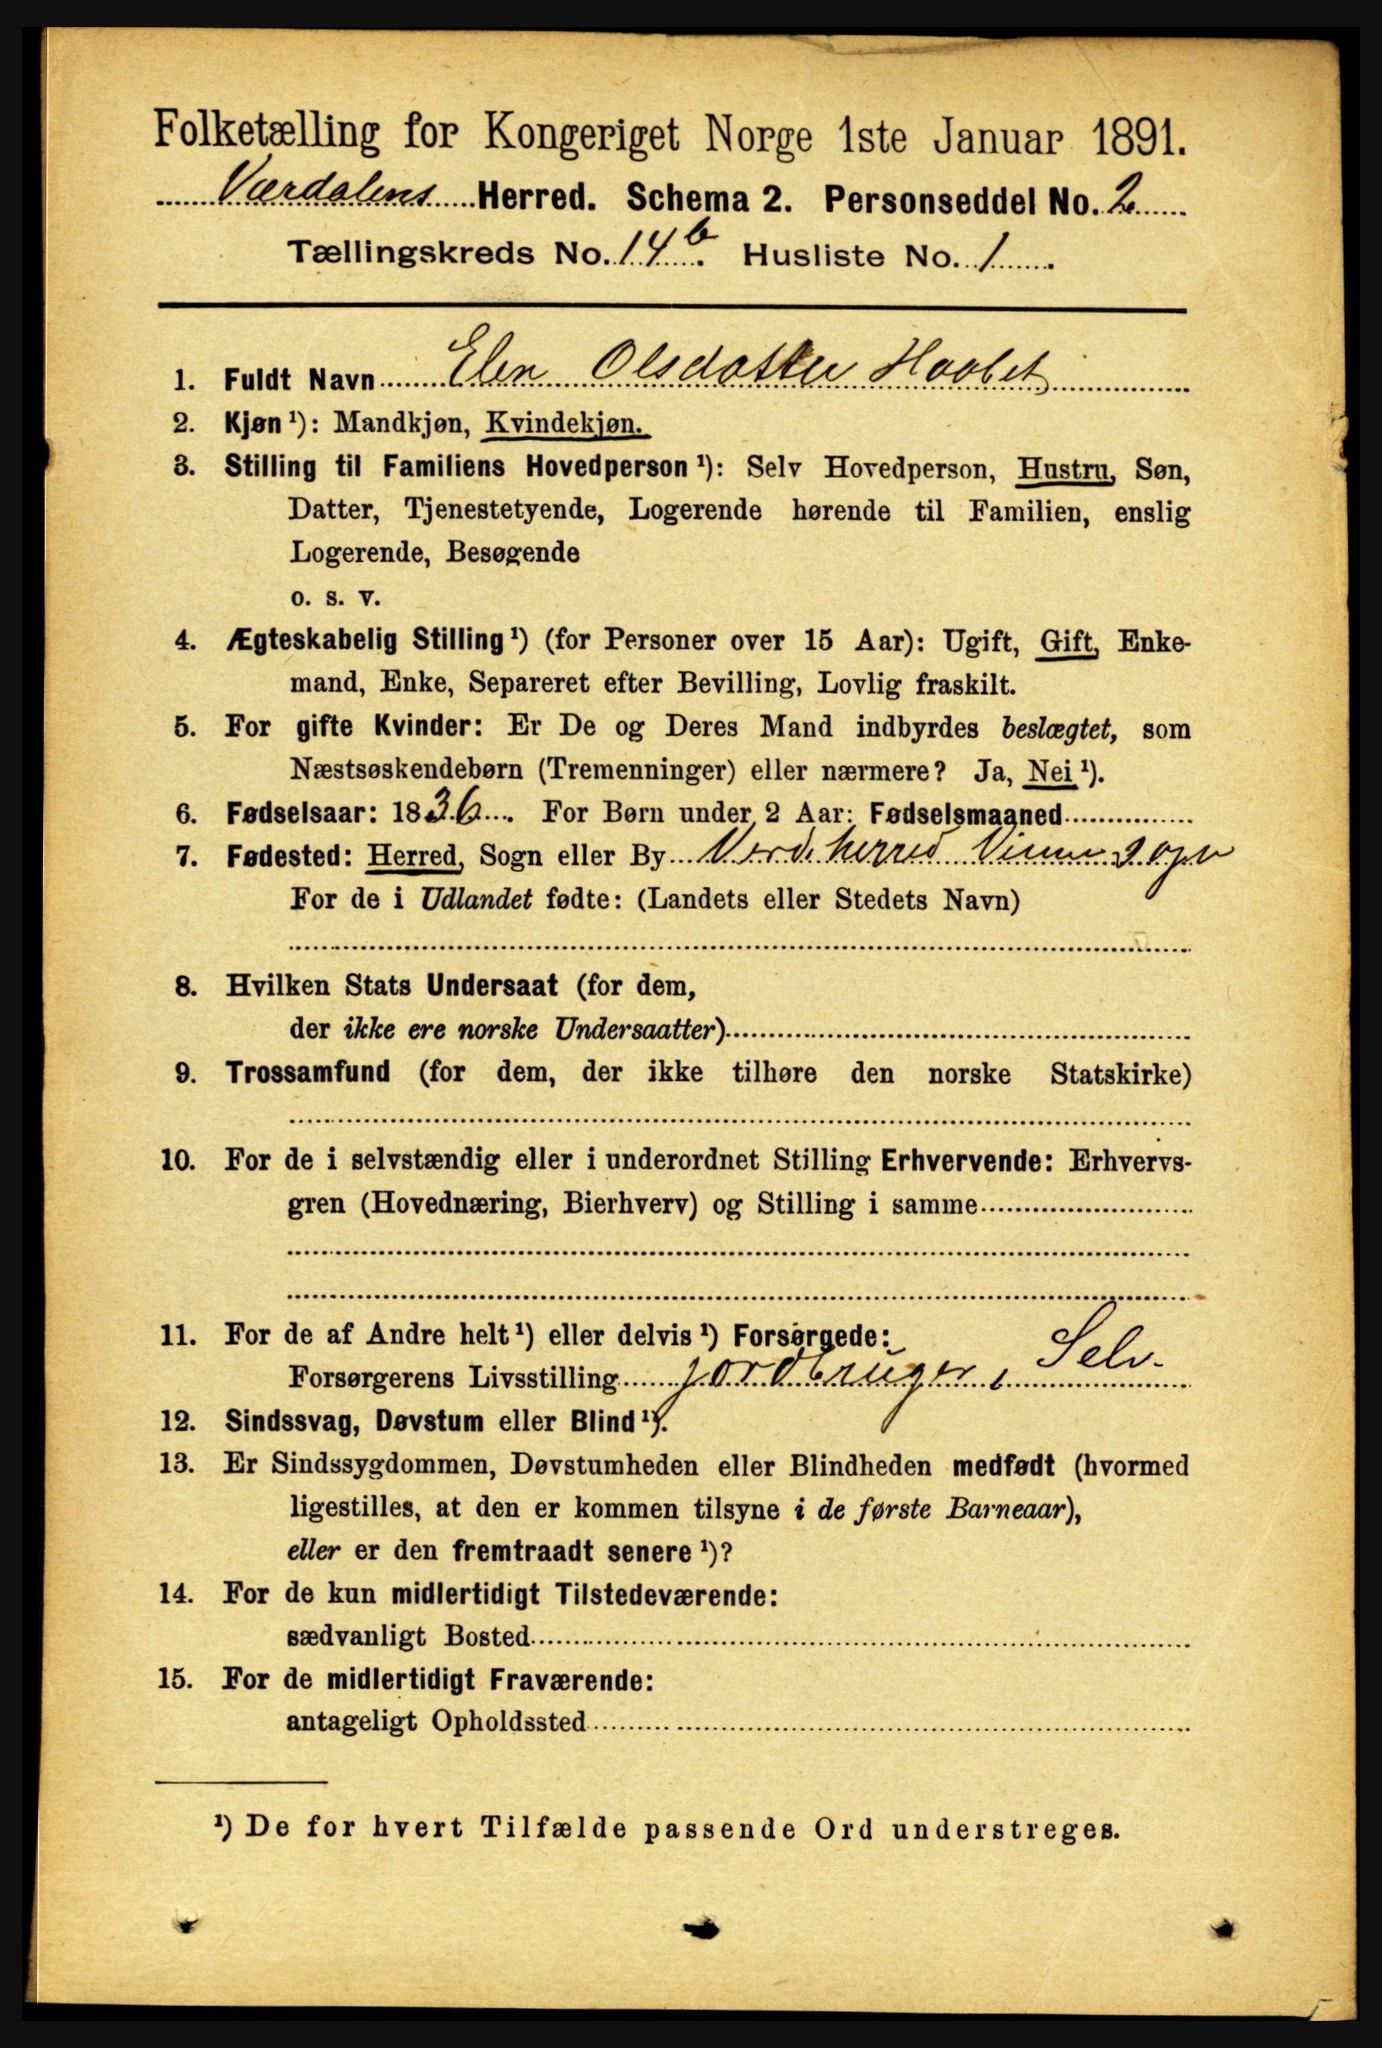 Folketælling for Kongeriget Norge 1ste Januar 1891.
Værdalens Herred. Schema 2. Personseddel No. 2
Tællingskreds No. 14b. Husliste No. 1
1. Fuldt Navn Elen Olsdatter Haabet
2. Kjøn ¹): Mandkjøn, Kvindekjøn.
3. Stilling til Familiens Hovedperson ¹): Selv Hovedperson, Hustru, Søn,
Datter, Tjenestetyende, Logerende hørende til Familien, enslig
Logerende, Besøgende
o. s. v.
4. Ægteskabelig Stilling ¹) (for Personer over 15 Aar): Ugift, Gift, Enke-
mand, Enke, Separeret efter Bevilling, Lovlig fraskilt.
5. For gifte Kvinder: Er De og Deres Mand indbyrdes beslægtet, som
Næstsøskendebørn (Tremenninger) eller nærmere? Ja, Nei ¹).
6. Fødselsaar: 1836. For Børn under 2 Aar: Fødselsmaaned
7. Fødested: Herred, Sogn eller By Verd. herred Vinne Sogn
For de i Udlandet fødte: (Landets eller Stedets Navn)
8. Hvilken Stats Undersaat (for dem,
der ikke ere norske Undersaatter)
9. Trossamfund (for dem, der ikke tilhøre den norske Statskirke)
10. For de i selvstændig eller i underordnet Stilling Erhvervende: Erhvervs-
gren (Hovednæring, Bierhverv) og Stilling i samme
11. For de af Andre helt ¹) eller delvis ¹) Forsørgede:
Forsørgerens Livsstilling jordbruger, Selv.
12. Sindssvag, Døvstum eller Blind ¹).
13. Er Sindssygdommen, Døvstumheden eller Blindheden medfødt (hvormed
ligestilles, at den er kommen tilsyne i de første Barneaar),
eller er den fremtraadt senere ¹)?
14. For de kun midlertidigt Tilstedeværende:
sædvanligt Bosted
15. For de midlertidigt Fraværende:
antageligt Opholdssted
¹) De for hvert Tilfælde passende Ord understreges.